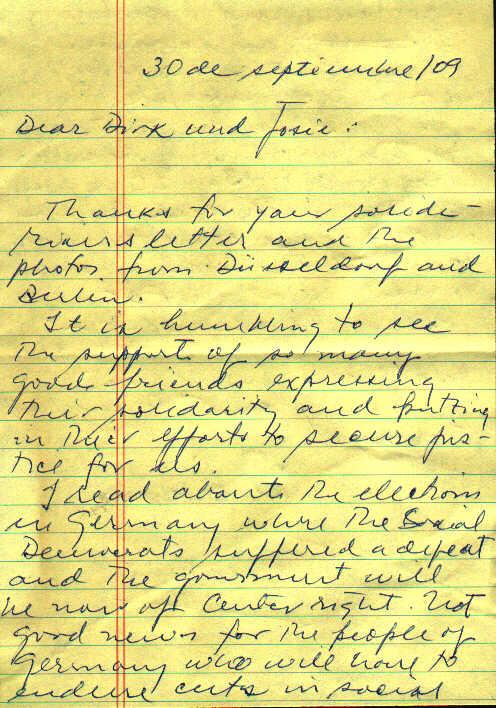 30 de septiembre/09
Dear Dirk und Josie:
Thanks for your solida-
letter and the
photos from Düsseldorf and
Berlin.
It is humbling to see
the support of so many
good friends expressing
their solidarity and putting
in their efforts to secure jus-
tice for us.
I read about the elections
in Germany where the Social
Democrats suffered a defeat
and the government will
be now of Center right. Not
good news for the people of
Germany who will have to
endure cuts in social